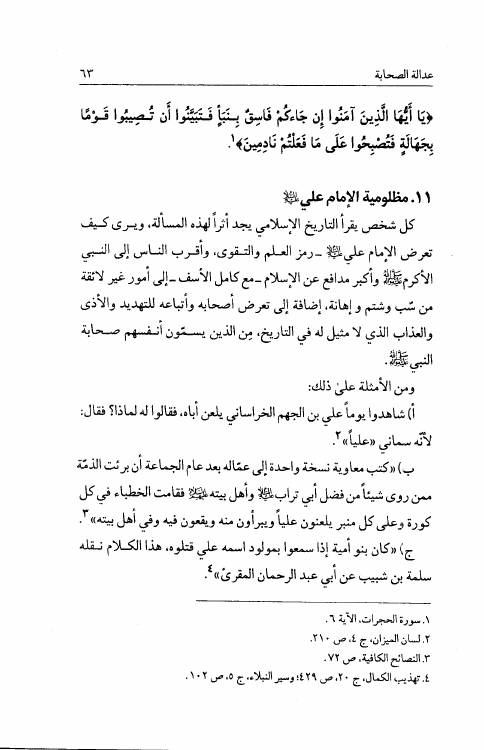 عدالة الصحابة ٦٣
﴿يَا أَيُّهَا الَّذِينَ آمَنُوا إِن جَاءكُمْ فَاسِقٌ بِنَبَأٍ فَتَبَيَّنُوا أَن تُصِيبُوا قَوْمًا
بِجَهَالَةٍ فَتُصْبِحُوا عَلَى مَا فَعَلْتُمْ نَادِمِينَ﴾١.
١١. مظلومية الإمام علي ﵇
كل شخص يقرأ التاريخ الإسلامي يجد أثراً لهذه المسألة، ويرى كيف
تعرض الإمام علي ﵇ ـ رمز العلم والتقوى، وأقرب الناس إلى النبي
الأكرم ﷺ وأكبر مدافع عن الإسلام ـ مع كامل الأسف ـ إلى أمور غير لائقة
من سّب وشتم و إهانة، إضافة إلى تعرض أصحابه وأتباعه للتهديد والأذى
والعذاب الذي لا مثيل له في التاريخ، مِن الذين يسمّون أنفسهم صحابة
النبي ﷺ.
ومن الأمثلة علىٰ ذلك:
أ) شاهدوا يوماً علي بن الجهم الخراساني يلعن أباه، فقالوا له لماذا؟ فقال:
لأنّه سماني «علياً»٢.
ب) «كتب معاوية نسخة واحدة إلى عمّاله بعد عام الجماعة أن برئت الذمّة
ممن روى شيئاً من فضل أبي تراب ﵇ وأهل بيته ﵈ فقامت الخطباء في كل
كورة وعلى كل منبر يلعنون علياً ويبرأون منه ويقعون فيه وفي أهل بيته»٣.
ج) «كان بنو أمية إذا سمعوا بمولود اسمه علي قتلوه، هذا الكلام نقله
سلمة بن شبيب عن أبي عبد الرحمان المقرئ»٤.
١. سورة الحجرات، الآية ٦.
٢. لسان الميزان، ج ٤، ص ٢١٠.
٣. النصائح الكافية، ص ٧٢.
٤. تهذيب الكمال، ج ٢٠، ص ٤٢٩؛ وسير النبلاء، ج ٥، ص ١٠٢.